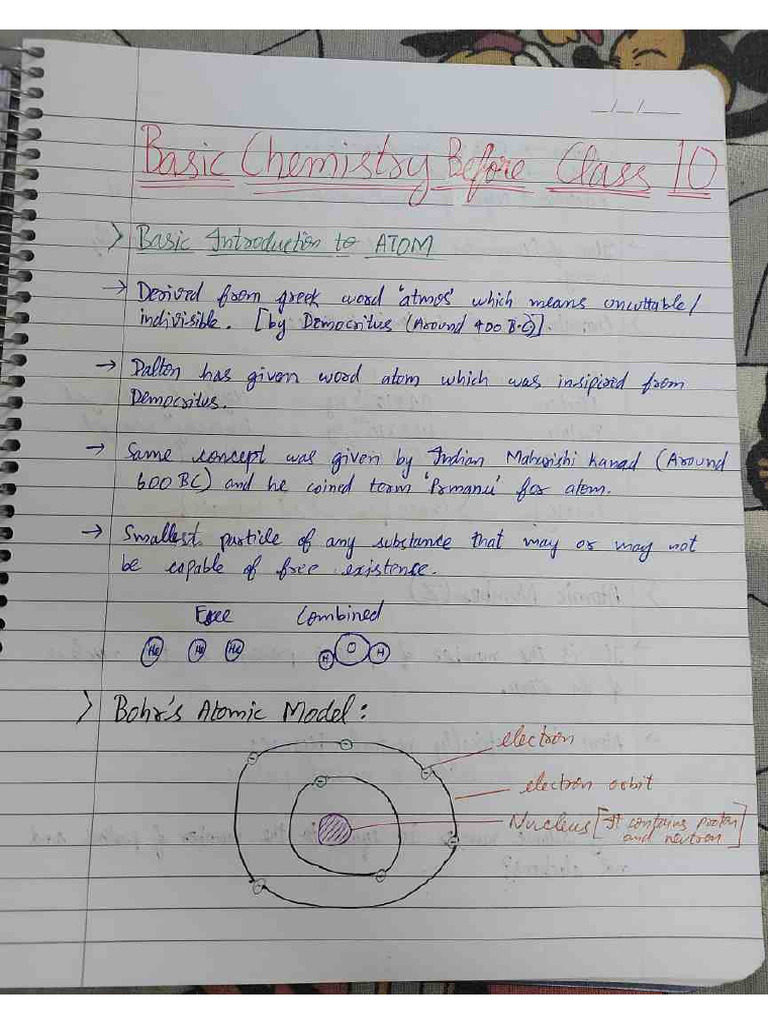 _/_/__
Basic Chemistry Before Class 10
> Basic Introduction to ATOM
→ Derived from greek word 'atmos' which means uncuttable/
indivisible. [by Democritus (Around 400 B.C)].
→ Dalton has given word atom which was insipired from
Democritus.
→ Same concept was given by Indian Maharishi kanad (Around
600 BC) and he coined term 'Prmanu' for atom.
→ Smallest particle of any substance that may or may not
be capable of free existence.
Free Combined
He He He H O H
> Bohr's Atomic Model:
electron
electron orbit
Nucleus [It contains proton
and neutron]